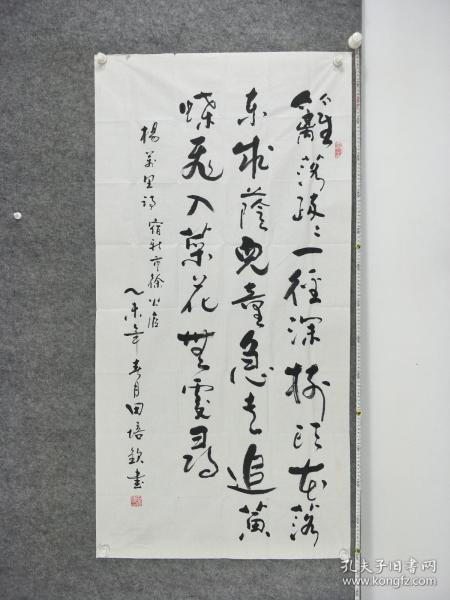 籬落疎々一徑深树頭花落
未成蔭兒童急走追黄
蝶飛入菜花無處尋
楊萬里詩 宿新市徐公店
乙未年春月田培欽書
孔夫子旧书网
www.kongfz.com